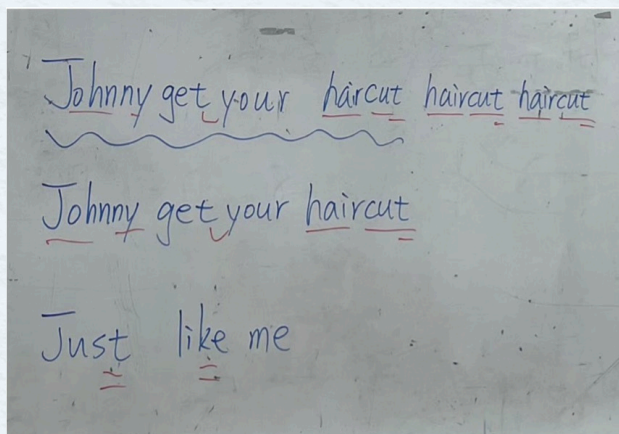 Johnny get your haircut haircut haircut
Johnny get your haircut
Just like me